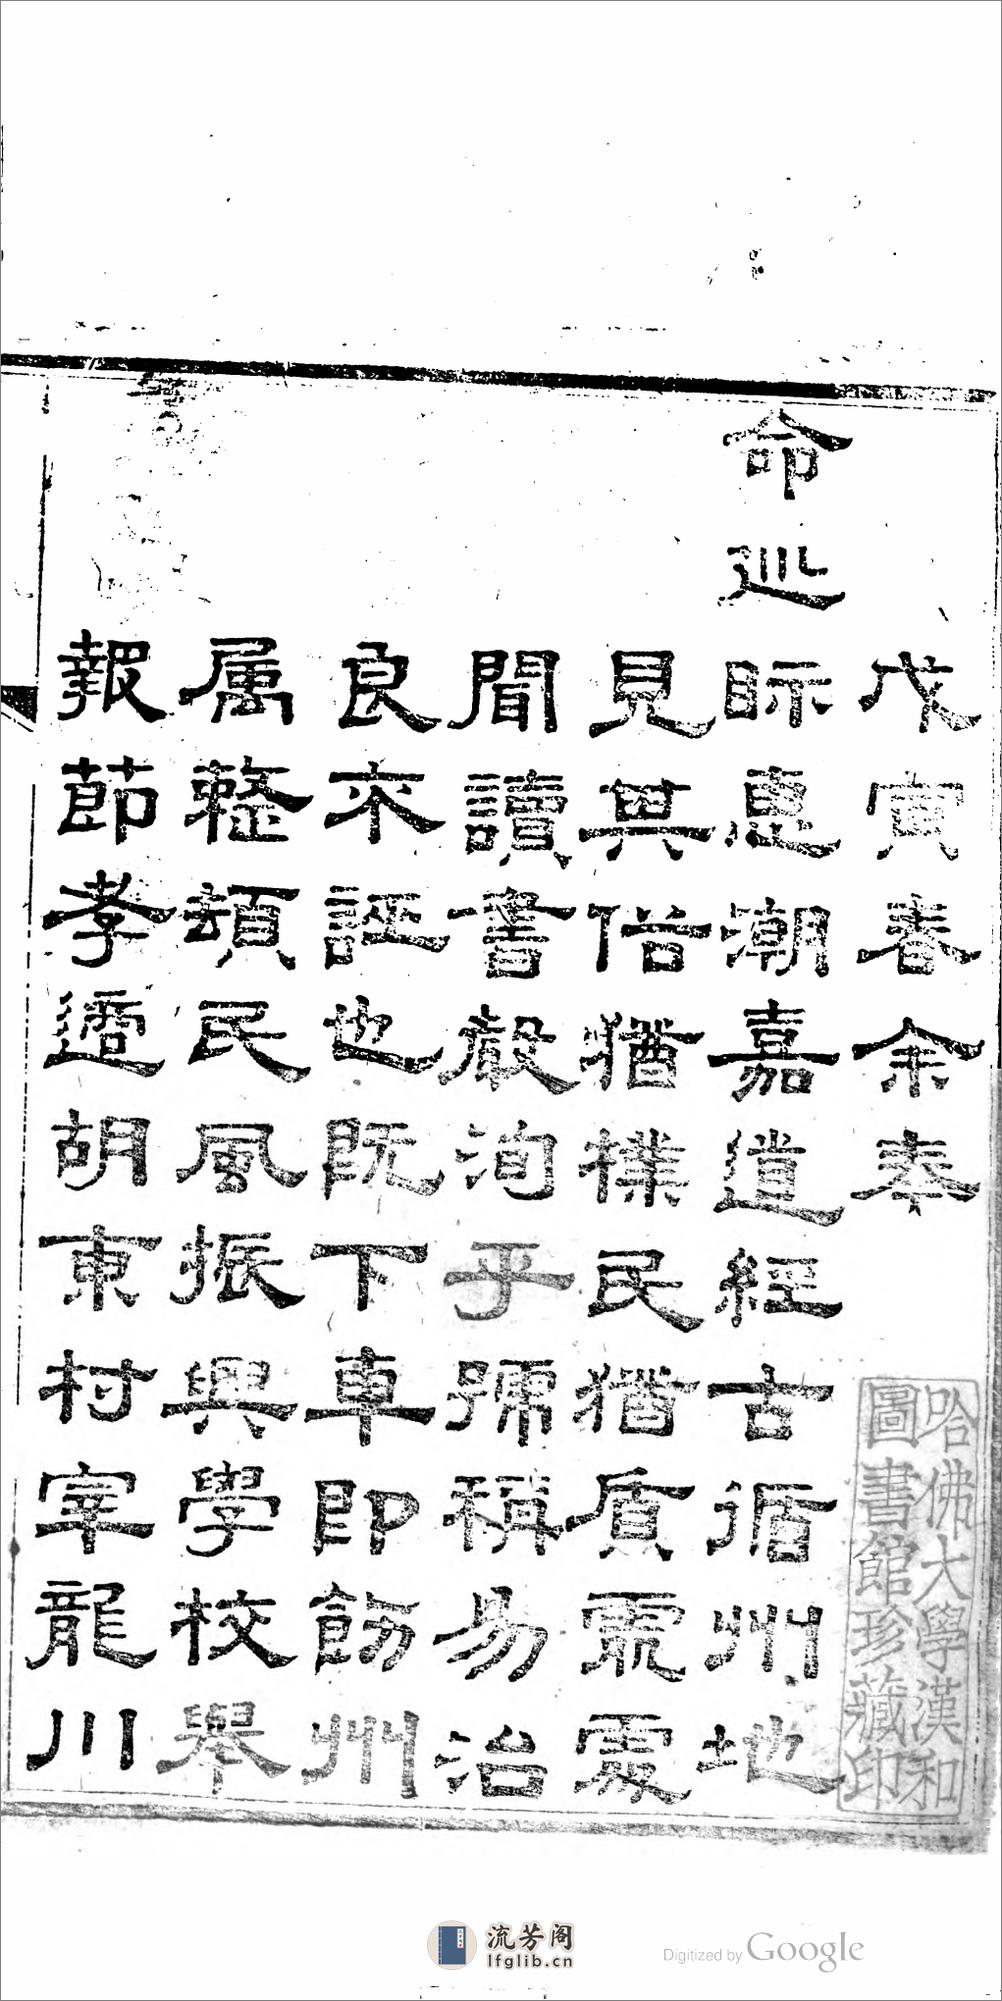 戊寅春余奉
命巡眎惠潮嘉道經古循州地
見其俗猶樸民猶質處處
聞讀書聲洵乎號稱易治
良不誣也既下車即飭州
属整頓民風振興學校舉
報節孝適胡東村宰龍川
哈佛大學漢和
圖書館珍藏印
流芳阁
lfglib.cn
Digitized by Google